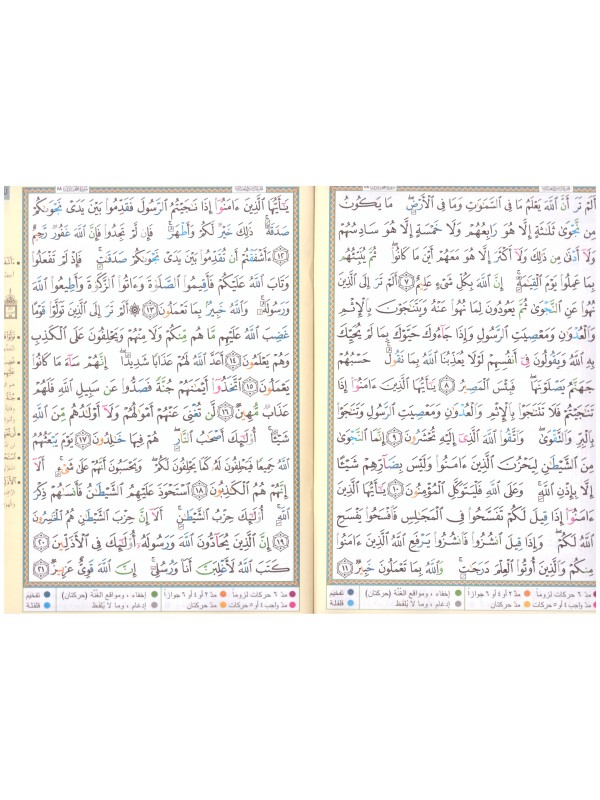 أَلَمْ تَرَ أَنَّ ٱللَّهَ يَعْلَمُ مَا فِى ٱلسَّمَٰوَٰتِ وَمَا فِى ٱلْأَرْضِ ۖ مَا يَكُونُ
مِن نَّجْوَىٰ ثَلَٰثَةٍ إِلَّا هُوَ رَابِعُهُمْ وَلَا خَمْسَةٍ إِلَّا هُوَ سَادِسُهُمْ
وَلَآ أَدْنَىٰ مِن ذَٰلِكَ وَلَآ أَكْثَرَ إِلَّا هُوَ مَعَهُمْ أَيْنَ مَا كَانُوا۟ ۖ ثُمَّ يُنَبِّئُهُم
بِمَا عَمِلُوا۟ يَوْمَ ٱلْقِيَٰمَةِ ۚ إِنَّ ٱللَّهَ بِكُلِّ شَىْءٍ عَلِيمٌ ٧ أَلَمْ تَرَ إِلَى ٱلَّذِينَ
نُهُوا۟ عَنِ ٱلنَّجْوَىٰ ثُمَّ يَعُودُونَ لِمَا نُهُوا۟ عَنْهُ وَيَتَنَٰجَوْنَ بِٱلْإِثْمِ
وَٱلْعُدْوَٰنِ وَمَعْصِيَتِ ٱلرَّسُولِ وَإِذَا جَآءُوكَ حَيَّوْكَ بِمَا لَمْ يُحَيِّكَ
بِهِ ٱللَّهُ وَيَقُولُونَ فِىٓ أَنفُسِهِمْ لَوْلَا يُعَذِّبُنَا ٱللَّهُ بِمَا نَقُولُ ۚ حَسْبُهُمْ
جَهَنَّمُ يَصْلَوْنَهَا ۖ فَبِئْسَ ٱلْمَصِيرُ ٨ يَٰٓأَيُّهَا ٱلَّذِينَ ءَامَنُوٓا۟ إِذَا
تَنَٰجَيْتُمْ فَلَا تَتَنَٰجَوْا۟ بِٱلْإِثْمِ وَٱلْعُدْوَٰنِ وَمَعْصِيَتِ ٱلرَّسُولِ وَتَنَٰجَوْا۟
بِٱلْبِرِّ وَٱلتَّقْوَىٰ ۖ وَٱتَّقُوا۟ ٱللَّهَ ٱلَّذِىٓ إِلَيْهِ تُحْشَرُونَ ٩ إِنَّمَا ٱلنَّجْوَىٰ
مِنَ ٱلشَّيْطَٰنِ لِيَحْزُنَ ٱلَّذِينَ ءَامَنُوا۟ وَلَيْسَ بِضَآرِّهِمْ شَيْـًٔا
إِلَّا بِإِذْنِ ٱللَّهِ ۚ وَعَلَى ٱللَّهِ فَلْيَتَوَكَّلِ ٱلْمُؤْمِنُونَ ١٠ يَٰٓأَيُّهَا ٱلَّذِينَ
ءَامَنُوٓا۟ إِذَا قِيلَ لَكُمْ تَفَسَّحُوا۟ فِى ٱلْمَجَٰلِسِ فَٱفْسَحُوا۟ يَفْسَحِ
ٱللَّهُ لَكُمْ ۖ وَإِذَا قِيلَ ٱنشُزُوا۟ فَٱنشُزُوا۟ يَرْفَعِ ٱللَّهُ ٱلَّذِينَ ءَامَنُوا۟
مِنكُمْ وَٱلَّذِينَ أُوتُوا۟ ٱلْعِلْمَ دَرَجَٰتٍ ۚ وَٱللَّهُ بِمَا تَعْمَلُونَ خَبِيرٌ ١١
مدّ ٦ حركات لزوماً مدّ ٢ أو ٤ أو ٦ جوازاً إخفاء ، ومواقع الغُنَّة (حركتان) تفخيم
مدّ واجب ٤ أو ٥ حركات مدّ حركتان إدغام ، وما لا يُلفَظ قلقلة
يَٰٓأَيُّهَا ٱلَّذِينَ ءَامَنُوٓا۟ إِذَا نَٰجَيْتُمُ ٱلرَّسُولَ فَقَدِّمُوا۟ بَيْنَ يَدَىْ نَجْوَىٰكُمْ
صَدَقَةً ۚ ذَٰلِكَ خَيْرٌ لَّكُمْ وَأَطْهَرُ ۚ فَإِن لَّمْ تَجِدُوا۟ فَإِنَّ ٱللَّهَ غَفُورٌ رَّحِيمٌ
١٢ ءَأَشْفَقْتُمْ أَن تُقَدِّمُوا۟ بَيْنَ يَدَىْ نَجْوَىٰكُمْ صَدَقَٰتٍ ۚ فَإِذْ لَمْ تَفْعَلُوا۟
وَتَابَ ٱللَّهُ عَلَيْكُمْ فَأَقِيمُوا۟ ٱلصَّلَوٰةَ وَءَاتُوا۟ ٱلزَّكَوٰةَ وَأَطِيعُوا۟ ٱللَّهَ
وَرَسُولَهُۥ ۚ وَٱللَّهُ خَبِيرٌۢ بِمَا تَعْمَلُونَ ١٣ ۞ أَلَمْ تَرَ إِلَى ٱلَّذِينَ تَوَلَّوْا۟ قَوْمًا
غَضِبَ ٱللَّهُ عَلَيْهِم مَّا هُم مِّنكُمْ وَلَا مِنْهُمْ وَيَحْلِفُونَ عَلَى ٱلْكَذِبِ
وَهُمْ يَعْلَمُونَ ١٤ أَعَدَّ ٱللَّهُ لَهُمْ عَذَابًا شَدِيدًا ۖ إِنَّهُمْ سَآءَ مَا كَانُوا۟
يَعْمَلُونَ ١٥ ٱتَّخَذُوٓا۟ أَيْمَٰنَهُمْ جُنَّةً فَصَدُّوا۟ عَن سَبِيلِ ٱللَّهِ فَلَهُمْ
عَذَابٌ مُّهِينٌ ١٦ لَّن تُغْنِىَ عَنْهُمْ أَمْوَٰلُهُمْ وَلَآ أَوْلَٰدُهُم مِّنَ ٱللَّهِ
شَيْـًٔا ۚ أُو۟لَٰٓئِكَ أَصْحَٰبُ ٱلنَّارِ ۖ هُمْ فِيهَا خَٰلِدُونَ ١٧ يَوْمَ يَبْعَثُهُمُ
ٱللَّهُ جَمِيعًا فَيَحْلِفُونَ لَهُۥ كَمَا يَحْلِفُونَ لَكُمْ ۖ وَيَحْسَبُونَ أَنَّهُمْ عَلَىٰ شَىْءٍ ۚ أَلَآ
إِنَّهُمْ هُمُ ٱلْكَٰذِبُونَ ١٨ ٱسْتَحْوَذَ عَلَيْهِمُ ٱلشَّيْطَٰنُ فَأَنسَىٰهُمْ ذِكْرَ
ٱللَّهِ ۚ أُو۟لَٰٓئِكَ حِزْبُ ٱلشَّيْطَٰنِ ۚ أَلَآ إِنَّ حِزْبَ ٱلشَّيْطَٰنِ هُمُ ٱلْخَٰسِرُونَ
١٩ إِنَّ ٱلَّذِينَ يُحَآدُّونَ ٱللَّهَ وَرَسُولَهُۥٓ أُو۟لَٰٓئِكَ فِى ٱلْأَذَلِّينَ ٢٠
كَتَبَ ٱللَّهُ لَأَغْلِبَنَّ أَنَا۠ وَرُسُلِىٓ ۚ إِنَّ ٱللَّهَ قَوِىٌّ عَزِيزٌ ٢١
مدّ ٦ حركات لزوماً مدّ ٢ أو ٤ أو ٦ جوازاً إخفاء ، ومواقع الغُنَّة (حركتان) تفخيم
مدّ واجب ٤ أو ٥ حركات مدّ حركتان إدغام ، وما لا يُلفَظ قلقلة